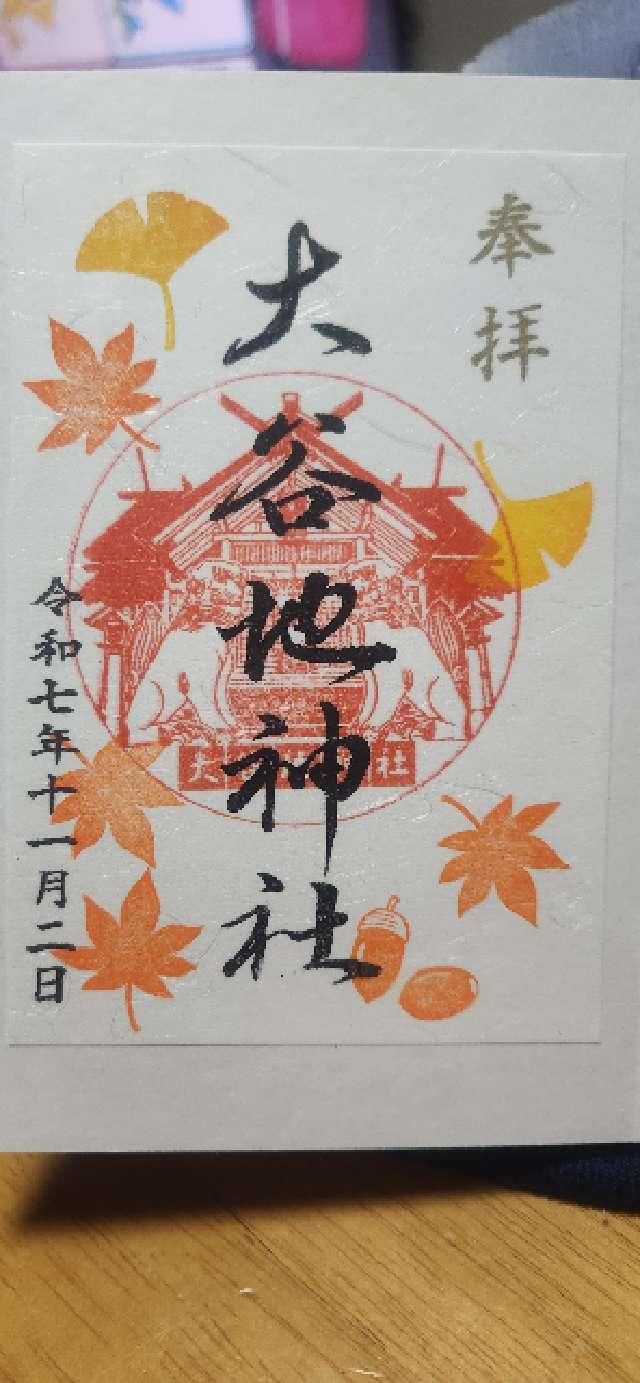 奉拝
大谷地神社
令和七年十一月二日